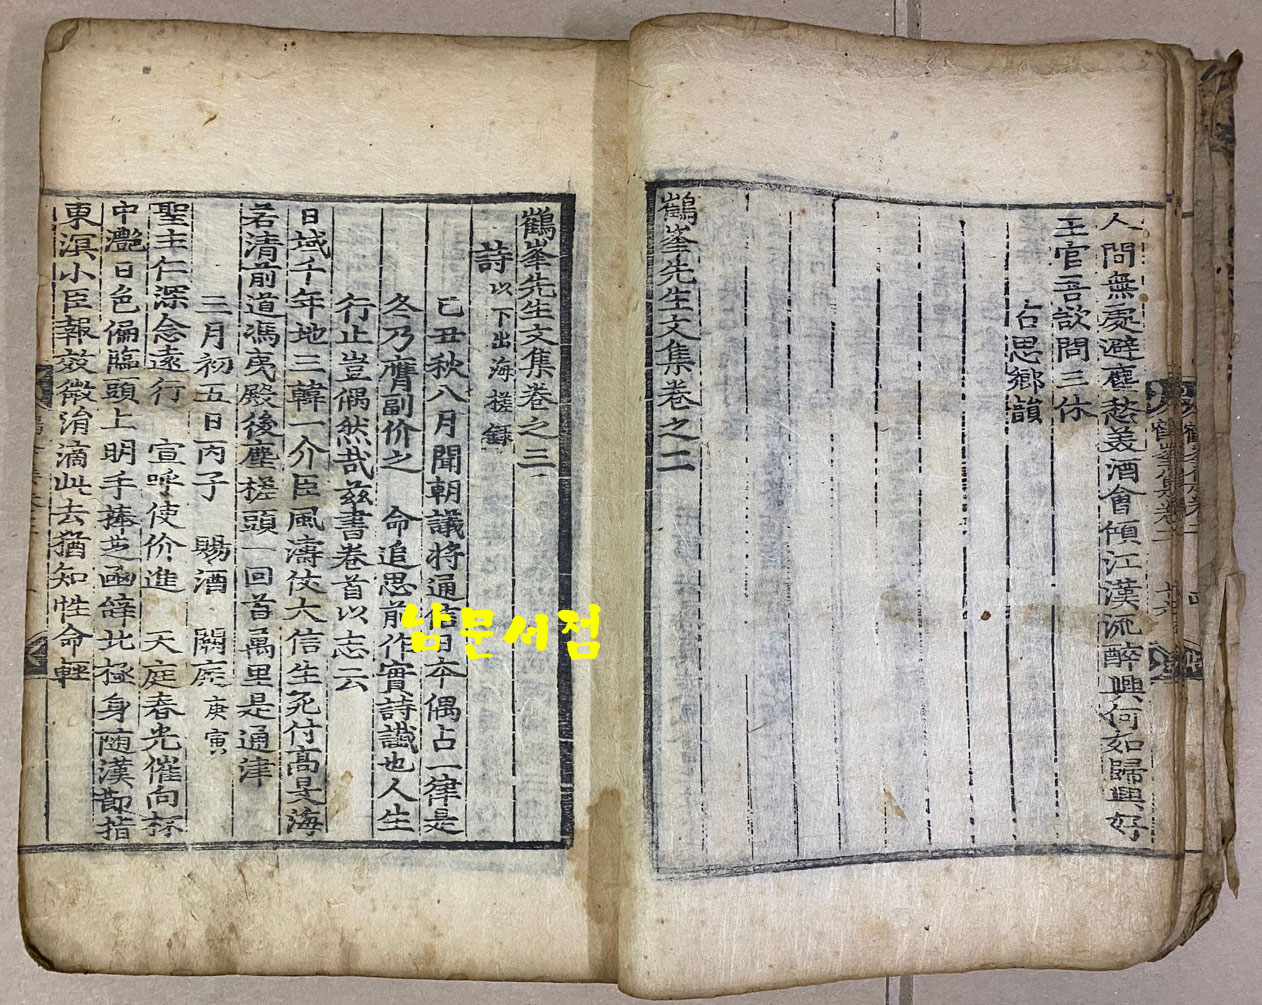 人間無處避塵愁美酒會傾江漢流醉興何如歸興好
王官吾欲問三休
右思鄉韻
鶴峯先生文集卷之二
鶴峯先生文集卷之三
詩 以下出海槎錄
己丑秋八月聞朝議將通信日本偶占一律是
冬乃膺副价之 命追思前作實詩讖也人生
行止豈偶然哉玆書卷首以志云
日域千年地三韓一介臣風濤仗大信生死付高旻海
若清前道馮夷殿後塵槎頭一回首萬里是通津
三月初五日丙子 賜酒 闕庭 庚寅
聖主仁深念遠行 宣呼使价進 天庭春光催向杯
中灔日色偏臨頭上明手捧芝函辭北極身隨漢節指
東溟小臣報效微涓滴此去猶知性命輕
남문서점